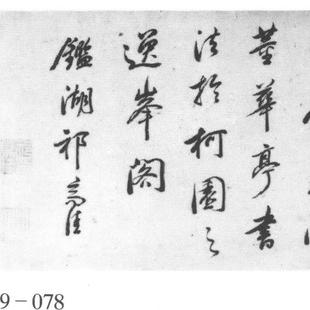 董華亭書
法於柯園之
選峯閣
鑑湖祁豸佳
9-078